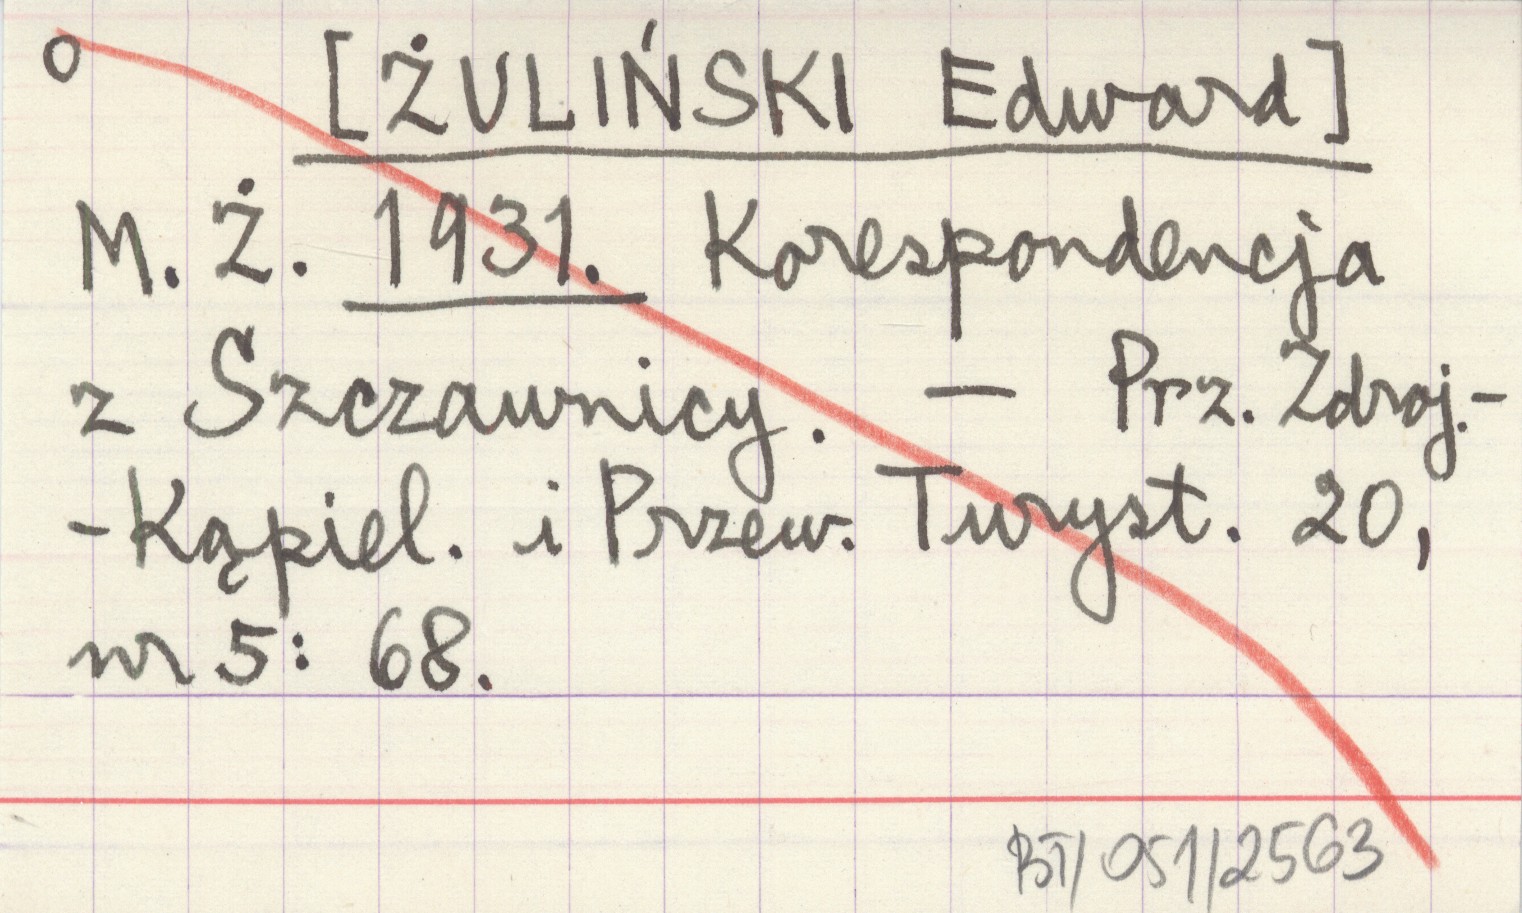 o [ŻULIŃSKI Edward]
M. Ż. 1931. Korespondencja
z Szczawnicy. — Prz. Zdroj.-
-Kąpiel. i Przew. Turyst. 20,
nr 5: 68.
BT/051/2563